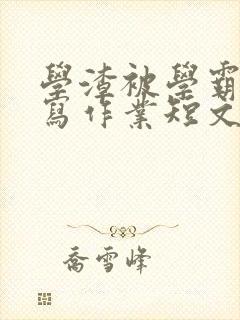 學渣被學霸
寫作業短文
喬雪峰